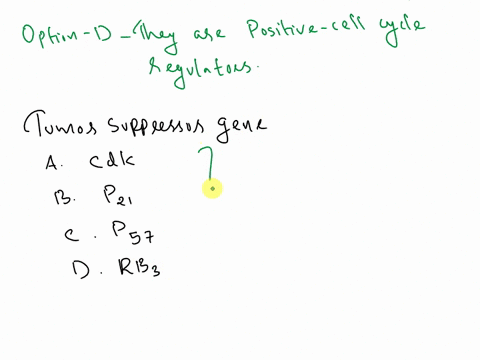 Option-D - They are Positive-cell cycle
regulators.
Tumor suppressor gene
A. cdk
B. P21
C. P57
D. RB3